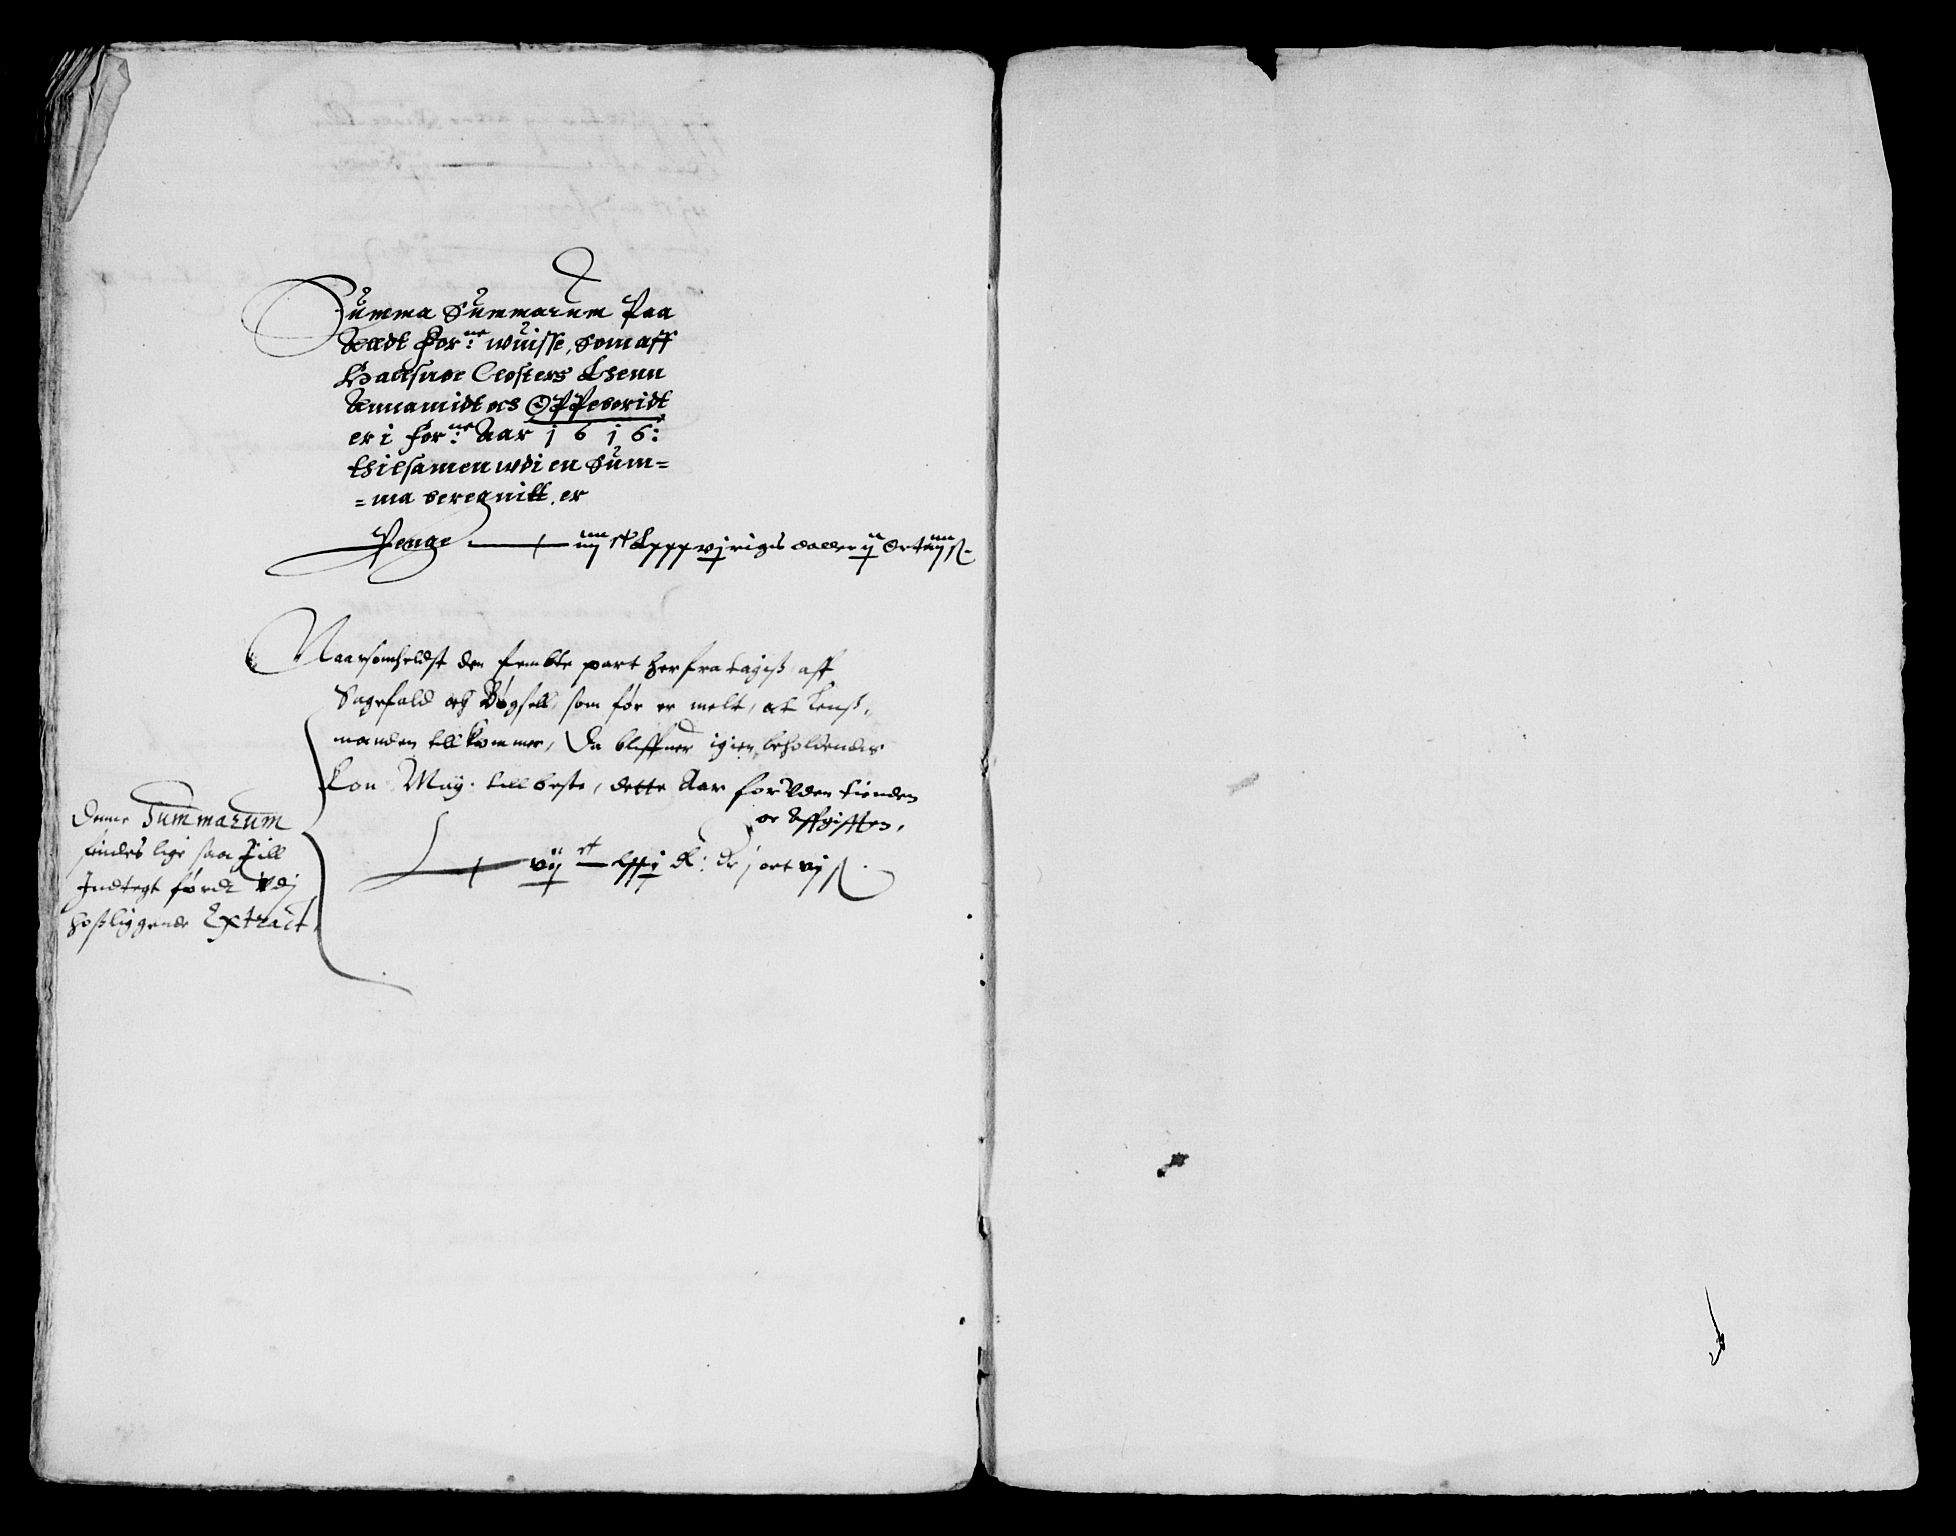 Summa Summarum Paa
Aadt forne: wuisse, som aff
Halsnøe Closters Lhenn
Annamidt och Oppeboridt
er i forne: Aar 1616:
thilsamen wdi en Sum=
=ma beregnitt, er
Penge iiij ct Lxxxvj rigis daller ij Ort iiij ß.
Naarsomheldst den fembte part herfra tagiß, aff
Sagefald och Bøgsell, som før er melt, at Lenß,
manden tillkommer, Da bliffuer igien beholdendis
Kon: May: till beste, dette Aar foruden tienden
oc Affgifften,
vij ct Lxxij d: dr j ort vj ß.
Denne Summarum
findes lige saa till
Indtegt førdt vdj
hoßliggende Extract,